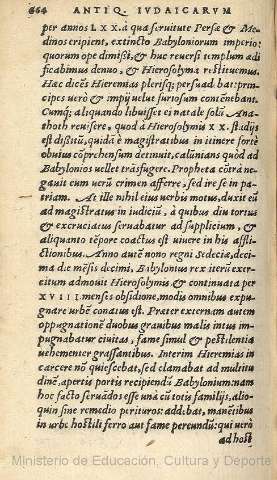 664 ANTIQ. IVDAICARVM
per annos LXX. à qua seruitute Persæ & Me-
dinos eripient, extincto Babyloniorum imperio:
quorum ope dimißi, & huc reuersi templum ædi
ficabimus denuo, & Hierosolyma restituemus.
Hæc dicēs Hieremias plerisq; persuadebat: prin-
cipes uerò & impij uelut furiosum contēnebant.
Cumq; aliquando libuisset ei natale solū Ana-
thoth reuisere, quod à Hierosolymis XX. stadijs
est dißitū, quidā è magistratibus in itinere fortè
obuius cōprehensum detinuit, calūnians quòd ad
Babylonios uellet trāsfugere. Propheta cōtrà ne-
gauit eum uerū crimen afferre, sed ire se in pa-
triam. At ille nihil eius uerbis motus, duxit eū
ad magistratus in iudiciū, à quibus diu tortus
& excruciatus seruabatur ad supplicium, &
aliquanto tēpore coactus est uiuere in his affli-
ctionibus. Anno autē nono regni Sedeciæ, deci-
ma die mēsis decimi, Babylonius rex iterū exer-
citum admouit Hierosolymis & continuata per
XVIII. menses obsidione, modis omnibus expu-
gnare urbē conatus est. Præter externam autem
oppugnationē duobus grauibus malis intus im-
pugnabatur ciuitas, fame simul & pestilentia
uehementer grassantibus. Interim Hieremias in
carcere nō quiescebat, sed clamabat ad multitu
dinē, apertis portis recipiendū Babylonium: nam
hoc facto seruādos esse unà cū totis familijs, alio-
quin sine remedio perituros: addebat, manētibus
in urbe hostili ferro aut fame pereundū: qui uerò
ad host
Ministerio de Educación, Cultura y Deporte